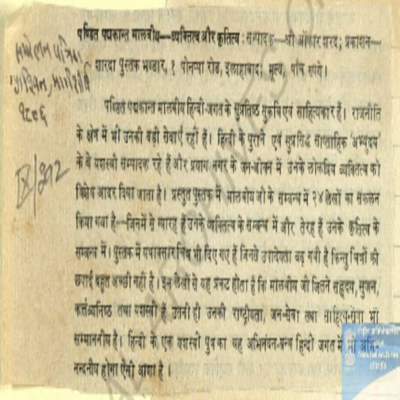 पण्डित पद्मकान्त मालवीय—व्यक्तित्व और कृतित्व : सम्पादक—श्री ओंकार शरद; प्रकाशन—
शारदा पुस्तक भण्डार, १ पोनप्पा रोड, इलाहाबाद; मूल्य, पांच रुपये।
सम्मेलन पत्रिका
पण्डित पद्मकान्त मालवीय हिन्दी-जगत के सुप्रतिष्ठ सुकवि एवं साहित्यकार हैं। राजनीति
के क्षेत्र में भी उनकी बड़ी सेवाएँ रही हैं। हिन्दी के पुराने एवं सुप्रसिद्ध साप्ताहिक 'अभ्युदय'
के वे यशस्वी सम्पादक रहे हैं और प्रयाग नगर के जन-जीवन में उनके लोकप्रिय व्यक्तित्व को
विशेष आदर दिया जाता है। प्रस्तुत पुस्तक में मालवीय जी के सम्बन्ध में २४ लेखों का संकलन
किया गया है—जिनमें से ग्यारह हैं उनके व्यक्तित्व के सम्बन्ध में और तेरह हैं उनके कृतित्व के
सम्बन्ध में। पुस्तक में यथावसर चित्र भी दिए गए हैं जिनसे उपादेयता बढ़ गयी है किन्तु चित्रों की
छपाई बहुत अच्छी नहीं है। इन लेखों से यह प्रकट होता है कि मालवीय जी जितने सहृदय, सुजन,
कर्त्तव्यनिष्ठ तथा यशस्वी हैं उतनी ही उनकी राष्ट्रीयता, जन-सेवा तथा साहित्य-सेवा भी
सम्माननीय है। हिन्दी के एक यशस्वी पुत्र का यह अभिनंदन-ग्रन्थ हिन्दी जगत में भी अभि-
नन्दनीय होगा ऐसी आशा है।